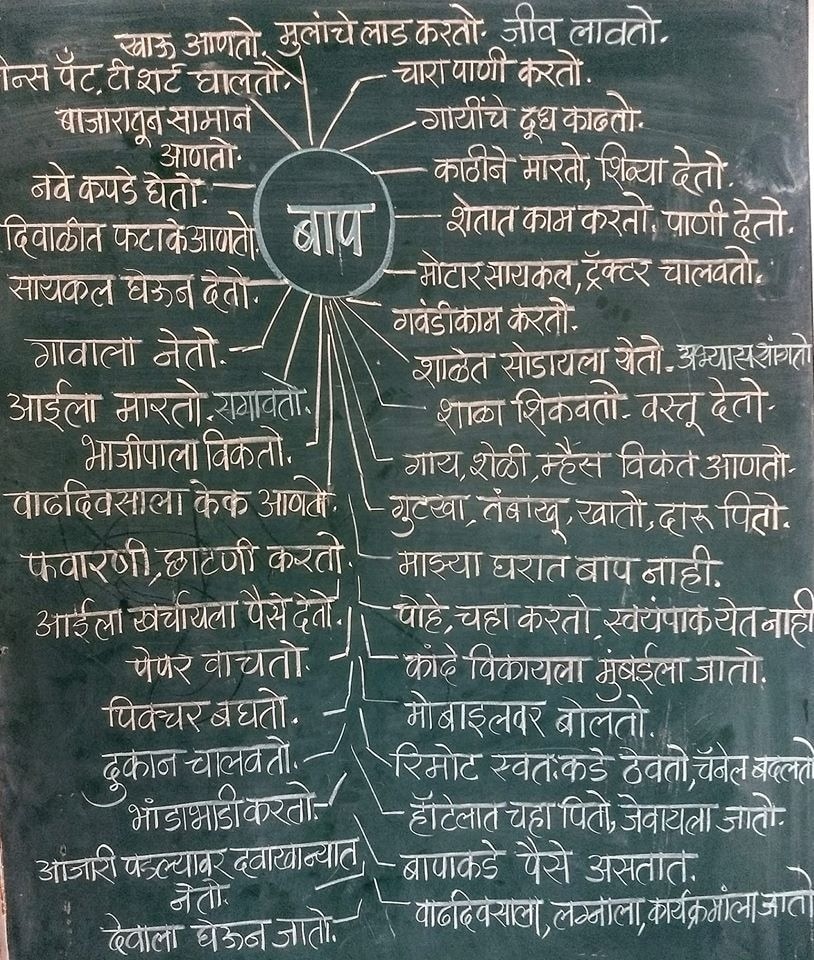 खाऊ आणतो. मुलांचे लाड करतो. जीव लावतो.
जेन्स पँट, टी शर्ट घालतो.
बाजारातून सामान
आणतो.
नवे कपडे घेतो.
दिवाळीत फटाके आणतो.
सायकल घेऊन देतो.
गावाला नेतो.
आईला मारतो. रागावतो.
भाजीपाला विकतो.
वाढदिवसाला केक आणतो.
फवारणी, छाटणी करतो.
आईला खर्चायला पैसे देतो.
पेपर वाचतो.
पिक्चर बघतो.
दुकान चालवतो.
भांडाभांडी करतो.
आजारी पडल्यावर दवाखान्यात
नेतो.
देवाला घेऊन जातो.
बाप
चारा पाणी करतो.
गायींचे दूध काढतो.
काठीने मारतो, शिव्या देतो.
शेतात काम करतो. पाणी देतो.
मोटार सायकल, ट्रॅक्टर चालवतो.
गवंडीकाम करतो.
शाळेत सोडायला येतो. अभ्यास सांगतो
शाळा शिकवतो. वस्तू देतो.
गाय, शेळी, म्हैस विकत आणतो.
गुटखा, तंबाखू, खातो, दारू पितो.
माझ्या घरात बाप नाही.
पोहे, चहा करतो, स्वयंपाक येत नाही
कांदे विकायला मुंबईला जातो.
मोबाइलवर बोलतो.
रिमोट स्वतःकडे ठेवतो, चॅनेल बदलतो
हॉटेलात चहा पितो, जेवायला जातो.
बापाकडे पैसे असतात.
वाढदिवसाला, लग्नाला, कार्यक्रमांला जातो